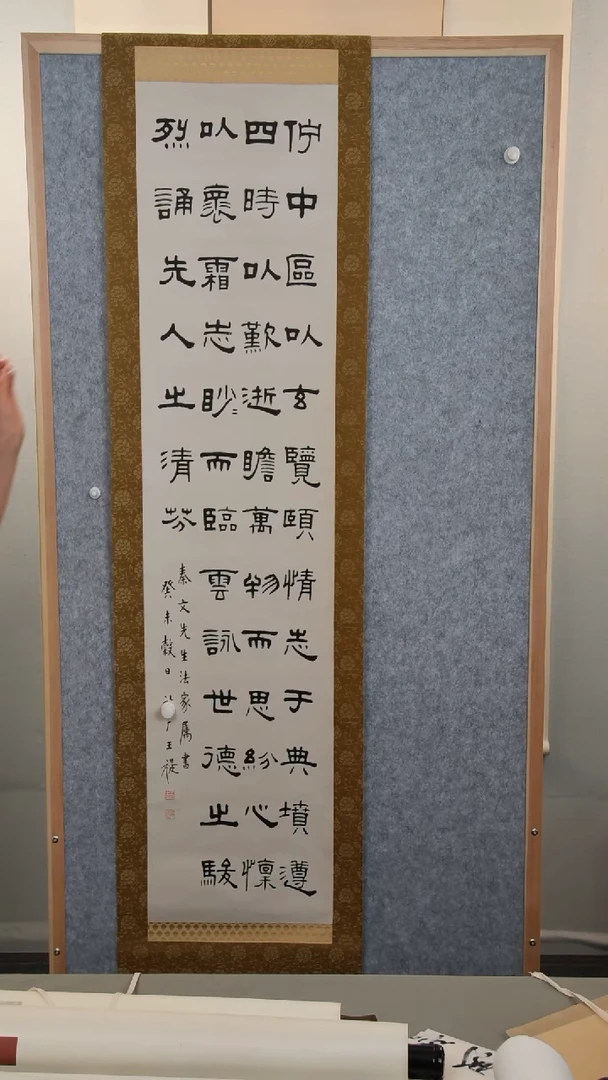 佇中區以玄覽頤情志于典墳遵
四時以歎逝瞻萬物而思紛心懍
以褱霜志眇〻而臨雲詠世德之駿
烈誦先人之清芬
秦文先生法家属書
癸未穀日 厂王禔